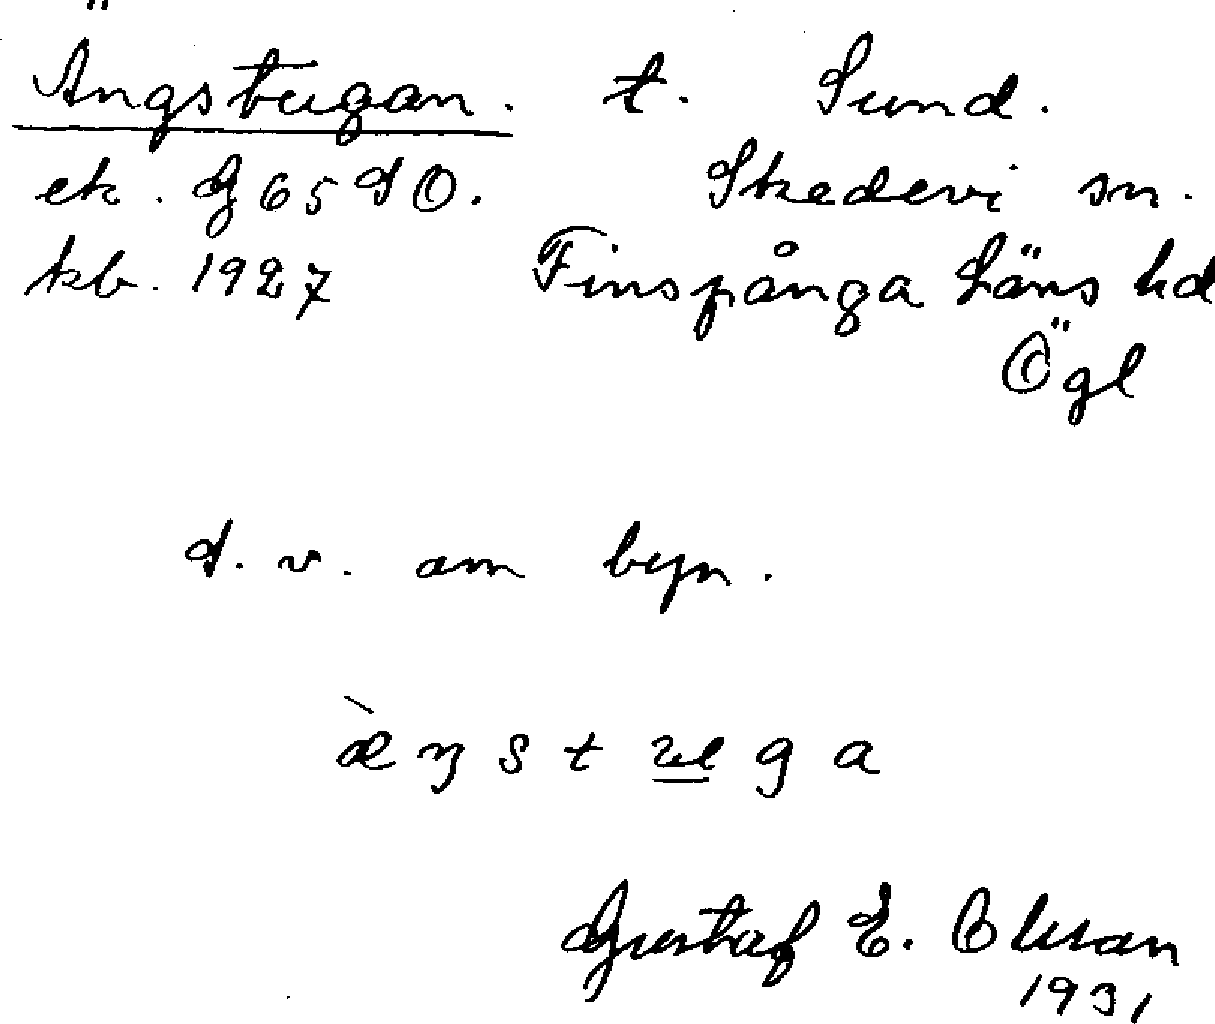 Ängstugan. t. Sund.
ek. G 65 d O. Skedevi sn.
kb. 1927 Finspånga Läns hd
Ögl
d. v. om byn.
æ̀ŋstuga
Gustaf E. Olsson
1931